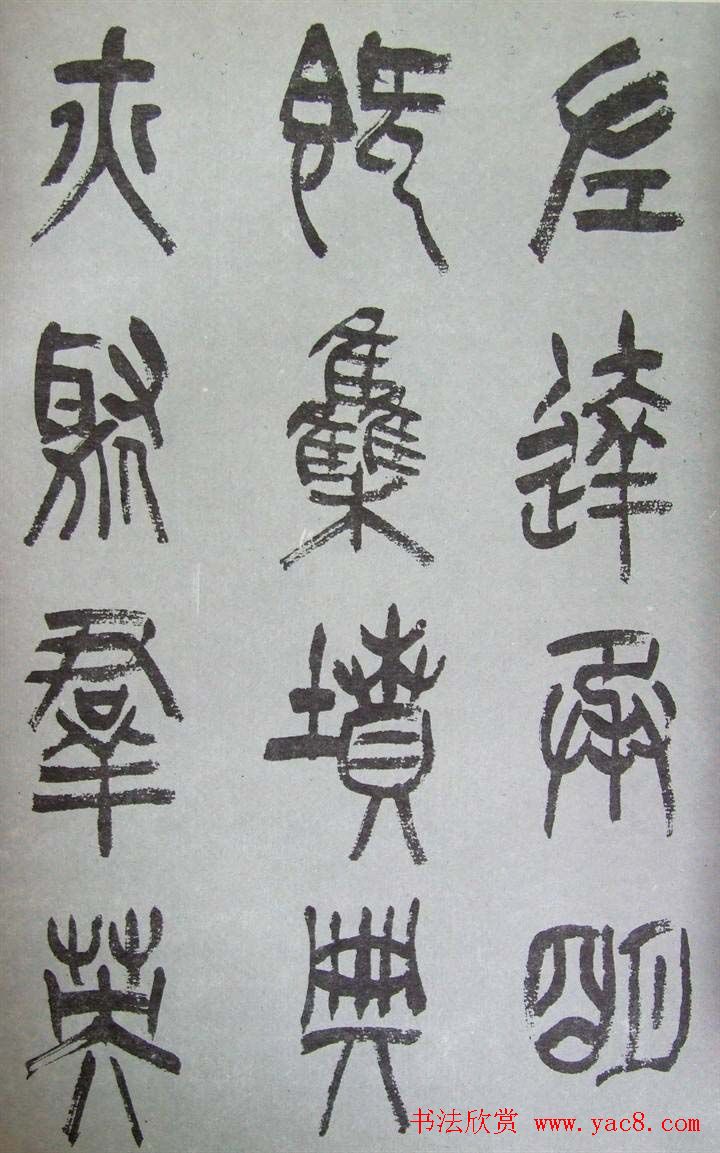 左達承明
既集墳典
亦聚群英
书法欣赏 www.yac8.com